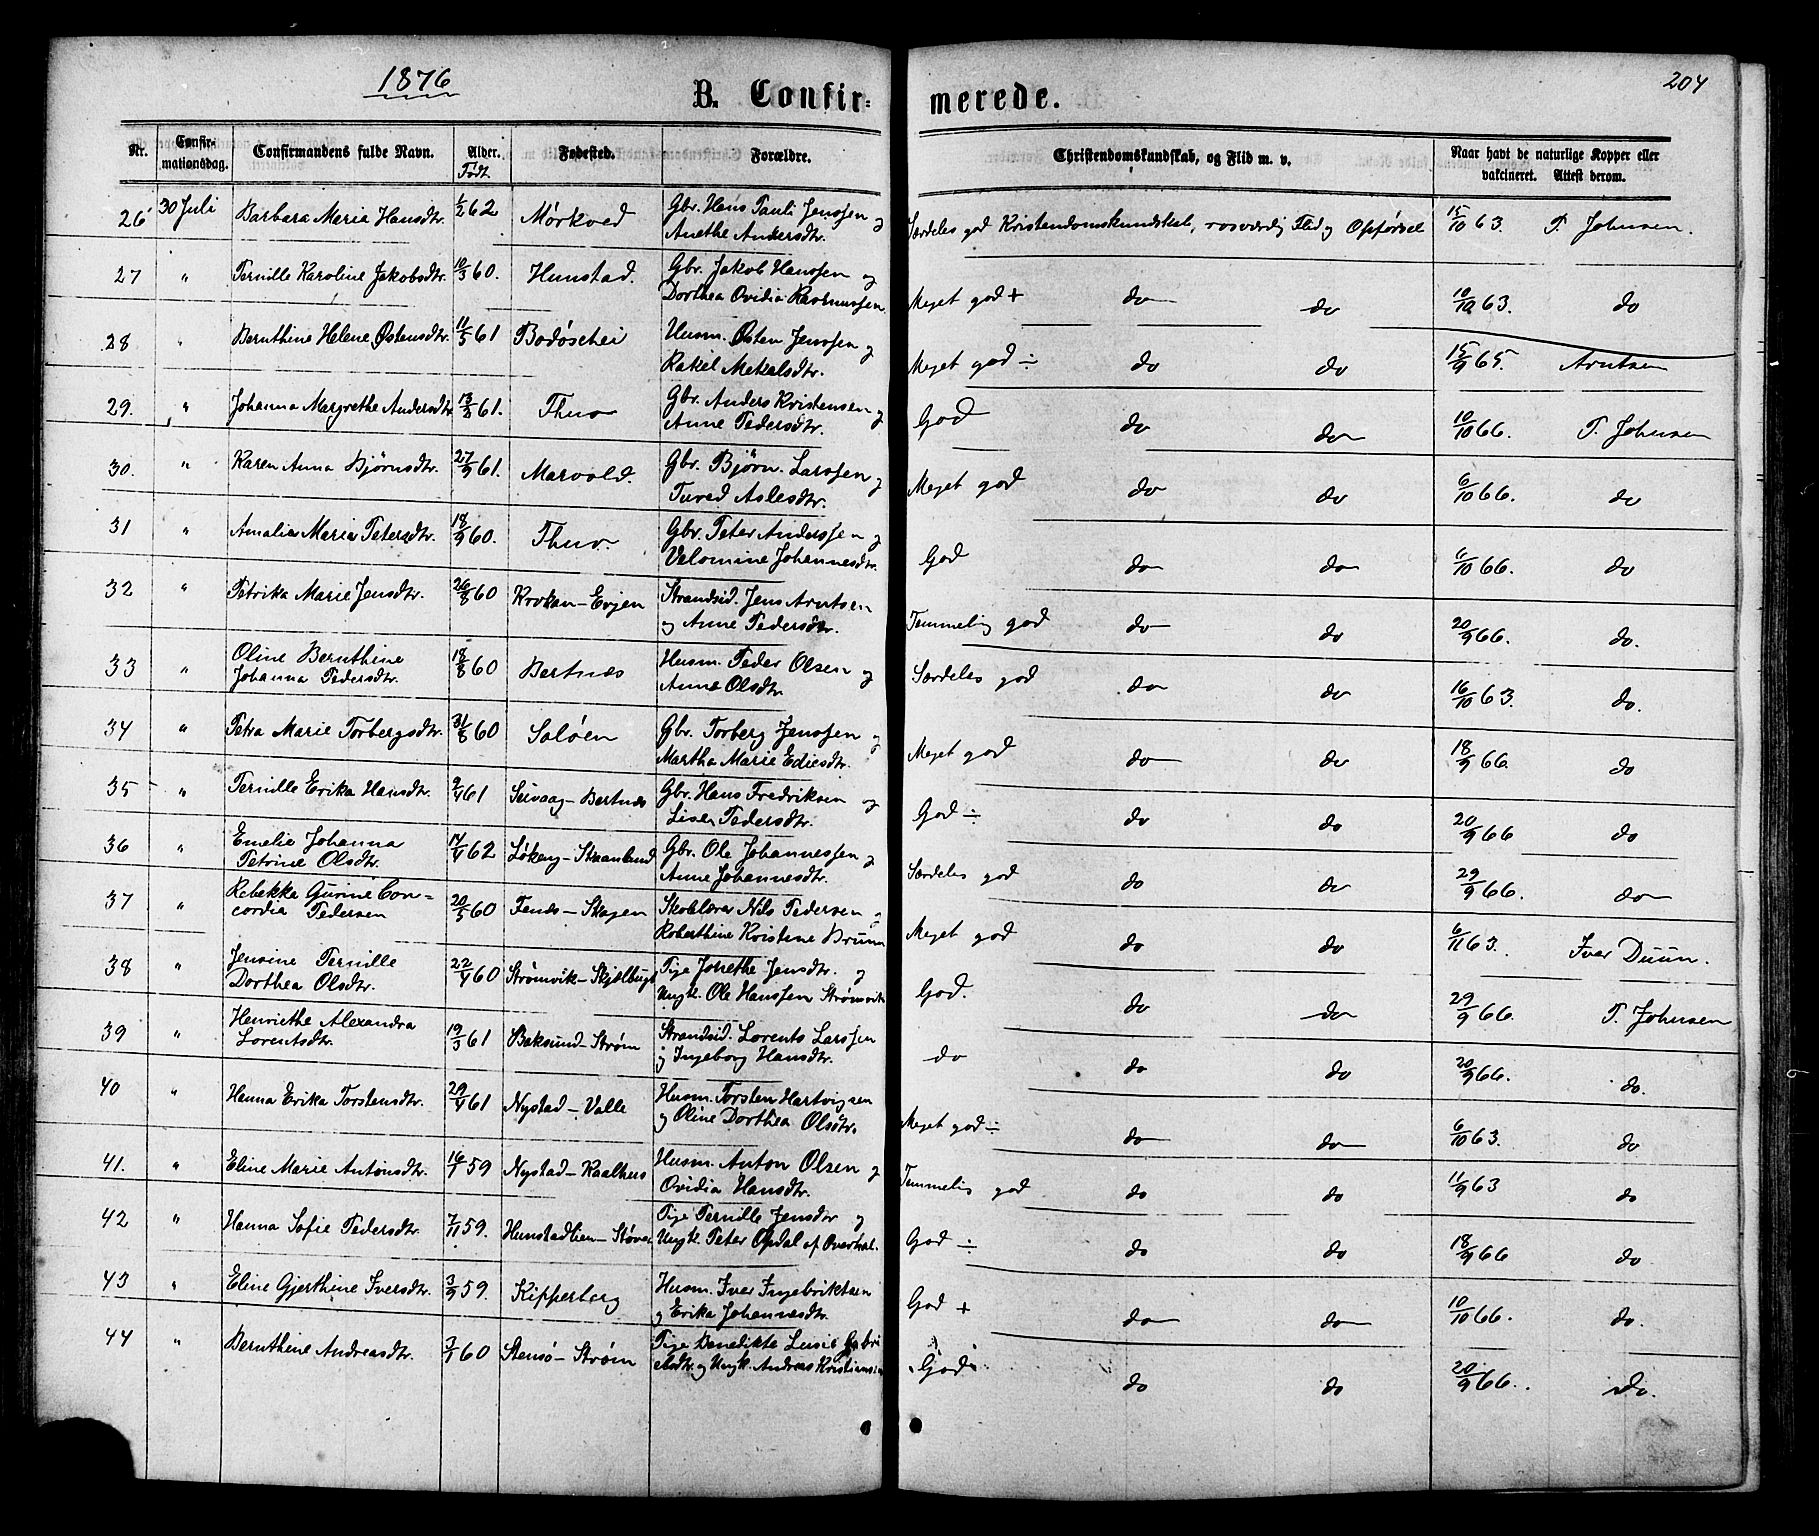 1876
B. Confirmerede.
204
Nr. Confirmationsdag. Confirmandens fulde Navn. Alder. Født. Fødested. Forældre. Christendomskundskab, og Flid m. v. Naar havt de naturlige Kopper eller vakcineret. Attest derom.
26 30 Juli Barbara Maria Hansdtr. 1/2 62 Mörkved Gbr. Hans Pauli Jenssen og Særdeles god Kristendomskundskab, rosværdig Flid og Opförsel 15/10 63. P. Johnsen.
Anethe Andersdtr.
27 " Pernille Karoline Jakobsdtr. 10/3 60. Hunstad. Gbr. Jakob Hanssen og Meget god + do do 10/10 63. do
Dorthea Ovidia Rasmussen
28 " Bernthine Helene Østensdtr. 11/5 61 Bodöschei Husm. Østen Jenssen og Meget god ÷ do do 15/9 65. Arntsen
Rakel Mekalsdtr.
29. " Johanna Margrethe Andersdtr. 61. Thuv Gbr. Anders Kristensen og God do do 10/10 66. P. Johnsen
Anne Pedersdtr.
30. " Karen Anna Bjørnsdtr. 27/9 61. Marvold. Gbr. Bjørn Larssen og Meget god do do 6/10 66. do
Tured Aslesdtr.
31 " Amalia Maria Petersdtr. 18/9 60. Thuv. Gbr. Peter Anderssen og God do do 10 66. do
Velomine Johannesdtr.
32 " Petrika Marie Jensdtr. 26/8 60 Krokan-Evjen Strandsid. Jens Arntsen Temmelig god do do 20/9 66. do.
og Anne Pedersdtr.
33 " Oline Bernthine 18/8 60 Bertnes Husm. Peder Olsen og Særdeles god do do 16/10 63. do.
Johanna Pedersdtr. Anne Olsdtr.
34 " Petra Marie Torbergsdtr. 31/8 60 Soløen Gbr. Torberg Jenssen og Meget god do do 18/9 66. do
Martha Marie Ediesdtr.
35 " Pernille Erika Hansdtr. 9/4 61 Seivaag-Bertnes Gbr. Hans Fredriksen og God ÷ do do 20/9 66 do
Lisa Pedersdtr.
36 " Emelie Johanna 17/4 62 Løkeng-Straumland Gbr. Ole Johannessen og Særdeles god do do 29/9 66. do
Petrine Olsdtr. Anne Johannesdtr.
37 " Rebekka Gurine Con- 20/5 60 Fenes-Skagen Skolelærer Nils Pedersen og Meget god do do 6/11 63. Iver Duun.
cordia Pedersen Roberthine Kristine Bruun
38 " Jensine Pernille 22/4 60 Strömvik-Skjælbugt Pige Johethe Jensdtr. og God. do do 29/9 66. P. Johnsen
Dorthea Olsdtr. Ungk. Ole Hanssen Strømvik
39 " Henriethe Alexandra 19/3 61 Baksund-Strøm Strandsid. Lorents Larssen do do do 20/9 66. do.
Lorentsdtr. og Ingeborg Hansdtr.
40 " Hanna Erika Torstensdtr. 29/4 61 Nystad-Valle Husm. Torsten Hartvigsen Meget god ÷ do do 6/10 63. do
og Oline Dorthea Olsdtr.
41. " Eline Marie Antonsdtr. 16/1 59 Nystad-Kaalhus Husm. Anton Olsen og Temmelig god do do 11/9 63 do
Ovidia Hansdtr.
42 " Hanna Sofie Pedersdtr. 7/11 59. Hunstadlien-Støver Pige Pernille Jensdtr og God ÷ do do 18/9 66 do
Ungk. Peter Opdal af Overhal.
43 " Eline Gjerthine Iversdtr. 3/9 59. Kipperberg Husm. Iver Ingebriktsen God + do do 10/10 66. do.
og Erika Johannesdtr.
44 " Bernthine Andreasdtr. 3/1 60 Stensø-Strøm Pige Benedikte Lusie Gabri- God do do 20/9 66. do.
elsdtr. og Ungk. Andreas Kristiansen